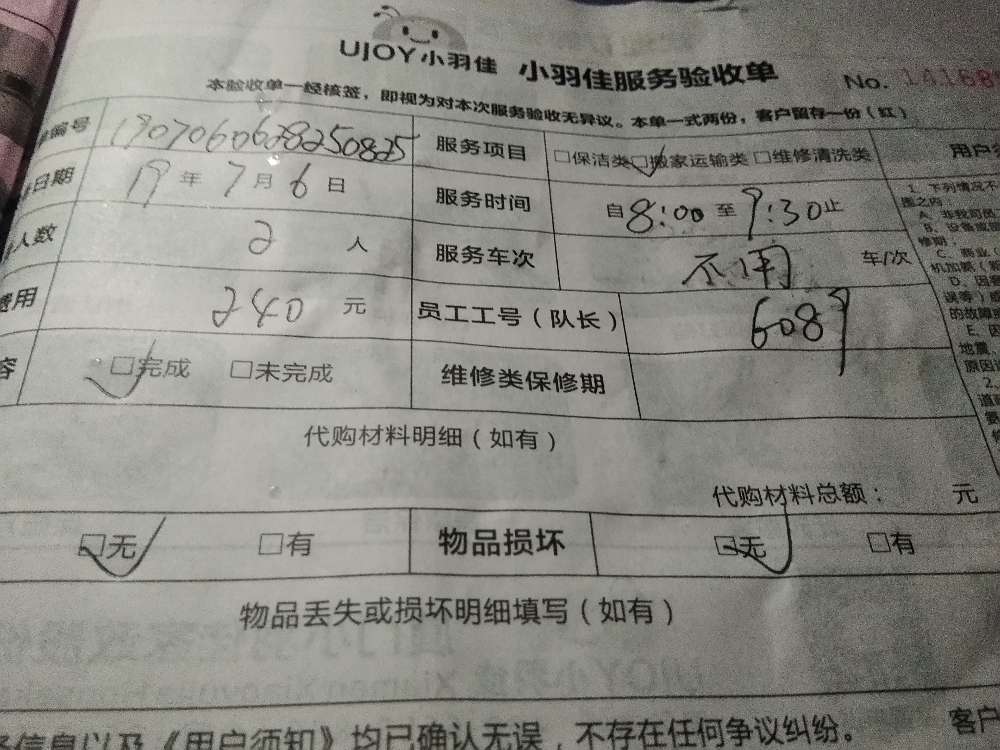 UJOY小羽佳 小羽佳服务验收单 No. 141689
本验收单一经核签，即视为对本次服务验收无异议。本单一式两份，客户留存一份（红）
编号 1907060628250825 服务项目 □保洁类 □搬家运输类 □维修清洗类
日期 19年7月6日 服务时间 自8:00至9:30止
人数 2人 服务车次 不用 车/次
费用 240元 员工工号（队长） 6089
容 □完成 □未完成 维修类保修期
代购材料明细（如有）
代购材料总额： 元
□无 □有 物品损坏 □无 □有
物品丢失或损坏明细填写（如有）
信息以及《用户须知》均已确认无误，不存在任何争议纠纷。 客户
用户须
1. 下列情况不
围之内
A. 非我司员
B. 设备或
修期
C. 商业（
机加题（
D. 因
误等）
的故障
E. 因
地震、
原因
2.